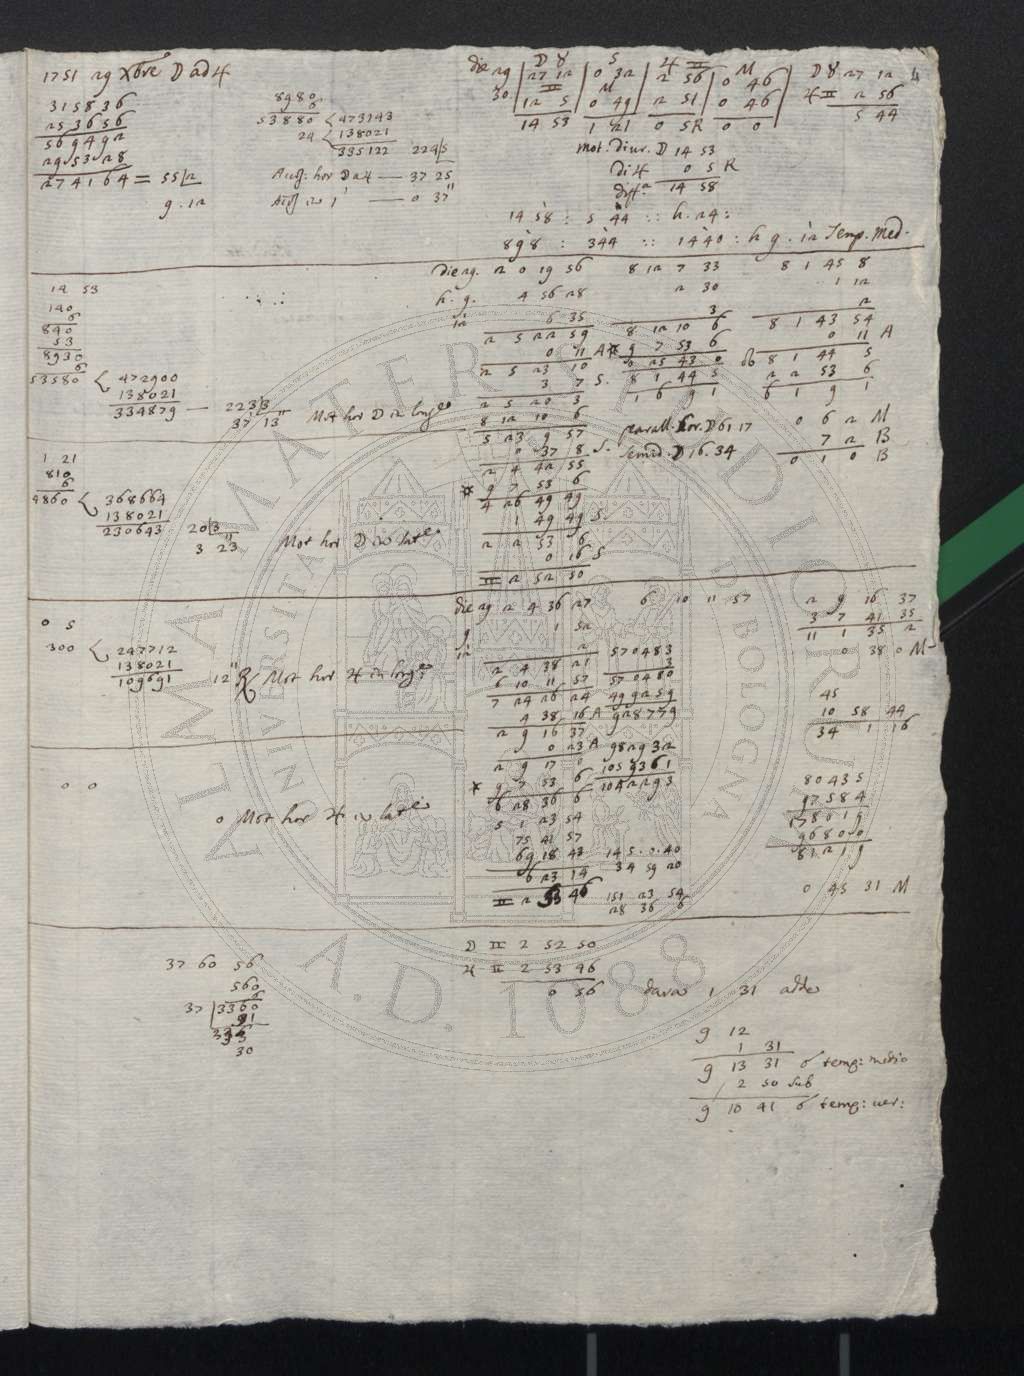 1751 29 Xbre ☽ ad ♃
315836
253656
569492
295328
274164 = 55|2
9.12
8980
6
53880 473143
24 138021
335122 224|5
Aug: hor ☽ a ♃ — 37 25
Aug in 1' — 0 37"
die 29 | ☽ ♉ 27 12 | S 0 32 | ♃ ♊ 2 56 | M 0 46 | ☽ ♉ 27 12 4
30 | ♊ 12 5 | M 0 49 | 2 51 | 0 46 | ♃ ♊ 2 56
14 53 1 21 0 5R 0 0 5 44
Mot. diur. ☽ 14 53
di ♃ 0 5 R
diffa 14 58
14 58 : 5 44 :: h. 24 :
898 : 344 :: 1440 : h 9 . 12 Temp. Med.
14 53
140
6
840
53
8930
6
53580 472900
138021
334879 — 223|3
37 13" Mot hor ☽ in longe
die 29. 2 0 19 56 8 12 7 33 8 1 45 8
h. 9. 4 56 28 2 30 1 12
12 6 35 3 2
2 5 22 59 8 12 10 6 8 1 43 54
0 11 A * 9 7 53 6 0 11 A
2 5 23 10 0 25 43 0 8 1 44 5
3 7 S. 8 1 44 5 2 2 53 6
2 5 20 3 1 6 9 1 6 1 9 1
8 12 10 6
5 23 9 57 parall. hor. ☽ 61 17 0 6 2 M
0 37 8 S. semid. ☽ 16.34 7 2 B
2 4 42 55 0 1 0 B
* 9 7 53 6
4 26 49 49
1 49 49 S.
2 2 53 6
0 16 S
♊ 2 52 50
1 21
810
6
4860 368664
138021
230643 20|3
3 23" Mot hor ☽ in late
0 5
300 247712
138021
109691 12" R Mot hor ♃ in longe
die 29 2 4 36 27 6 10 11 57 2 9 16 37
9 1 52 3 7 41 35
12 2 570483 11 1 35 2
2 4 38 21 3 0 38 0 M
6 10 11 57 570480
7 24 26 24 499259 45
4 38 16 A 928779 10 58 44
2 9 16 37 34 1 16
0 23 A 982932
2 9 17 0 1059361
* 9 7 53 6 1042293 80435
6 28 36 6 97584
5 1 23 54 178019
75 41 57 96800
69 18 43 145.0.40 81219
6 23 14 34 59 20
♊ 2 53 46 151 23 54 0 45 31 M
28 36 6
0 0
0 Mot hor ♃ in late
☽ ♊ 2 52 50
♃ ♊ 2 53 46
0 56 dava 1 31 adde
37 60 56
560
6
37 | 3360
30
9 12
1 31
9 13 31 ☌ temp: medio
2 50 sub
9 10 41 ☌ temp: ver:
ALMA MATER STUDIORUM
UNIVERSITÀ DI BOLOGNA
A.D. 1088